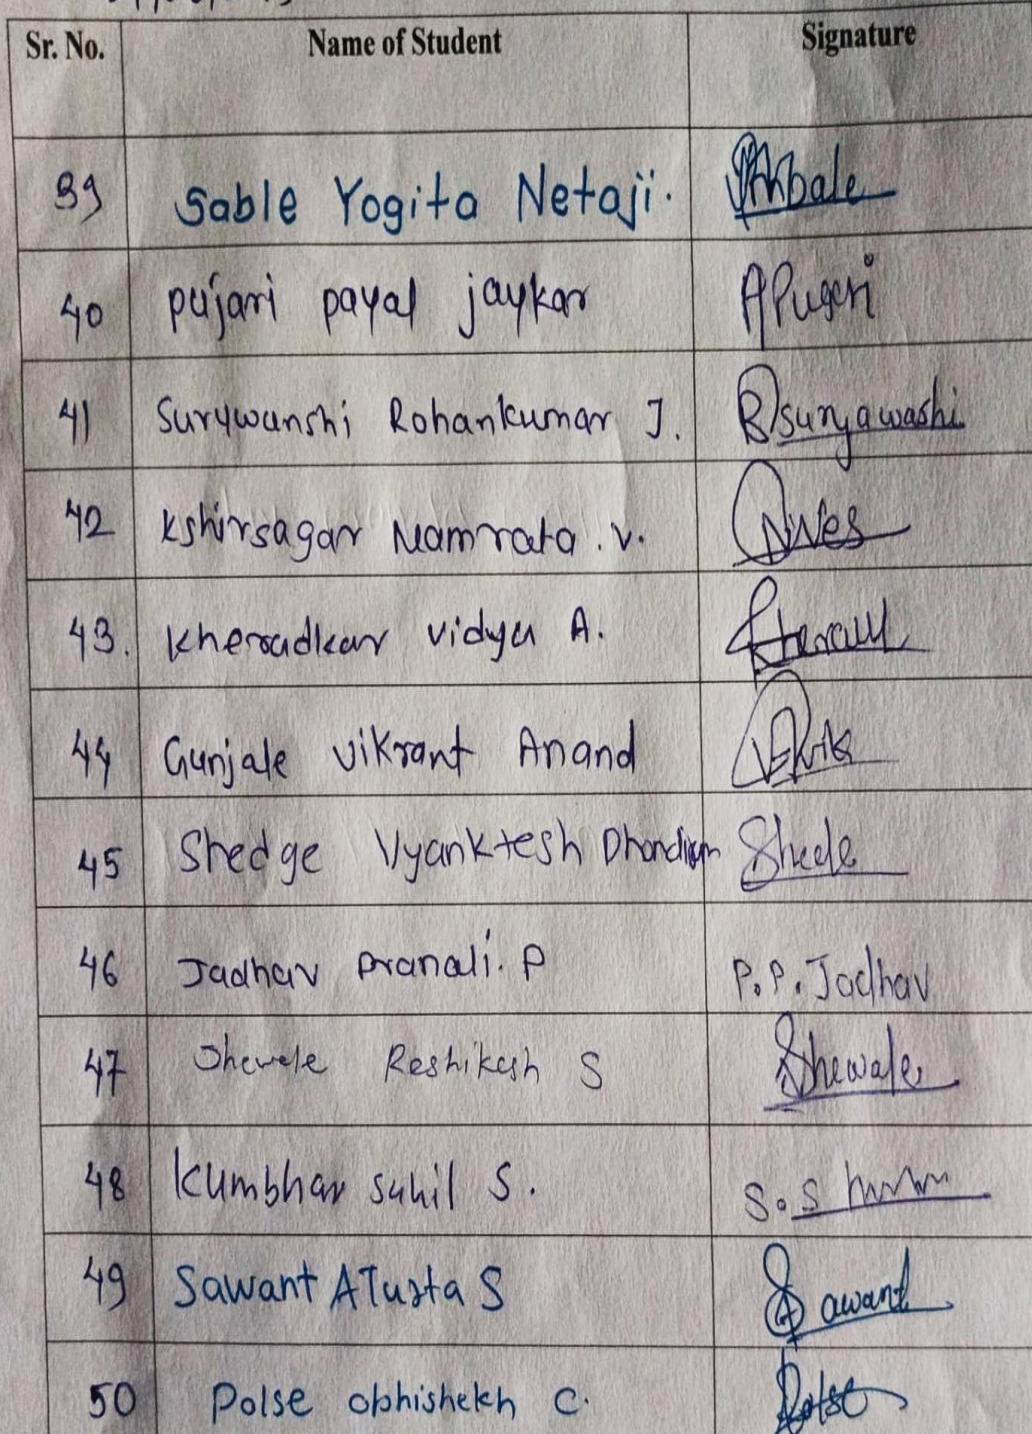 Sr. No. Name of Student Signature
39 Sable Yogita Netaji.
40 pujari payal jaykar APujari
41 Surywanshi Rohankumar J. Rsuryawashi
42 Kshirsagar Namrata . V.
43. Kheradkar vidya A.
44 Gunjale Vikrant Anand
45 Shedge Vyanktesh Dhondiram
46 Jadhav Pranali. P P. P. Jadhav
47 Shewale Reshikesh S Shewale
48 Kumbhar Sahil S. S. S
49 Sawant ATusta S Sawant
50 Polse abhishekh C. Polse